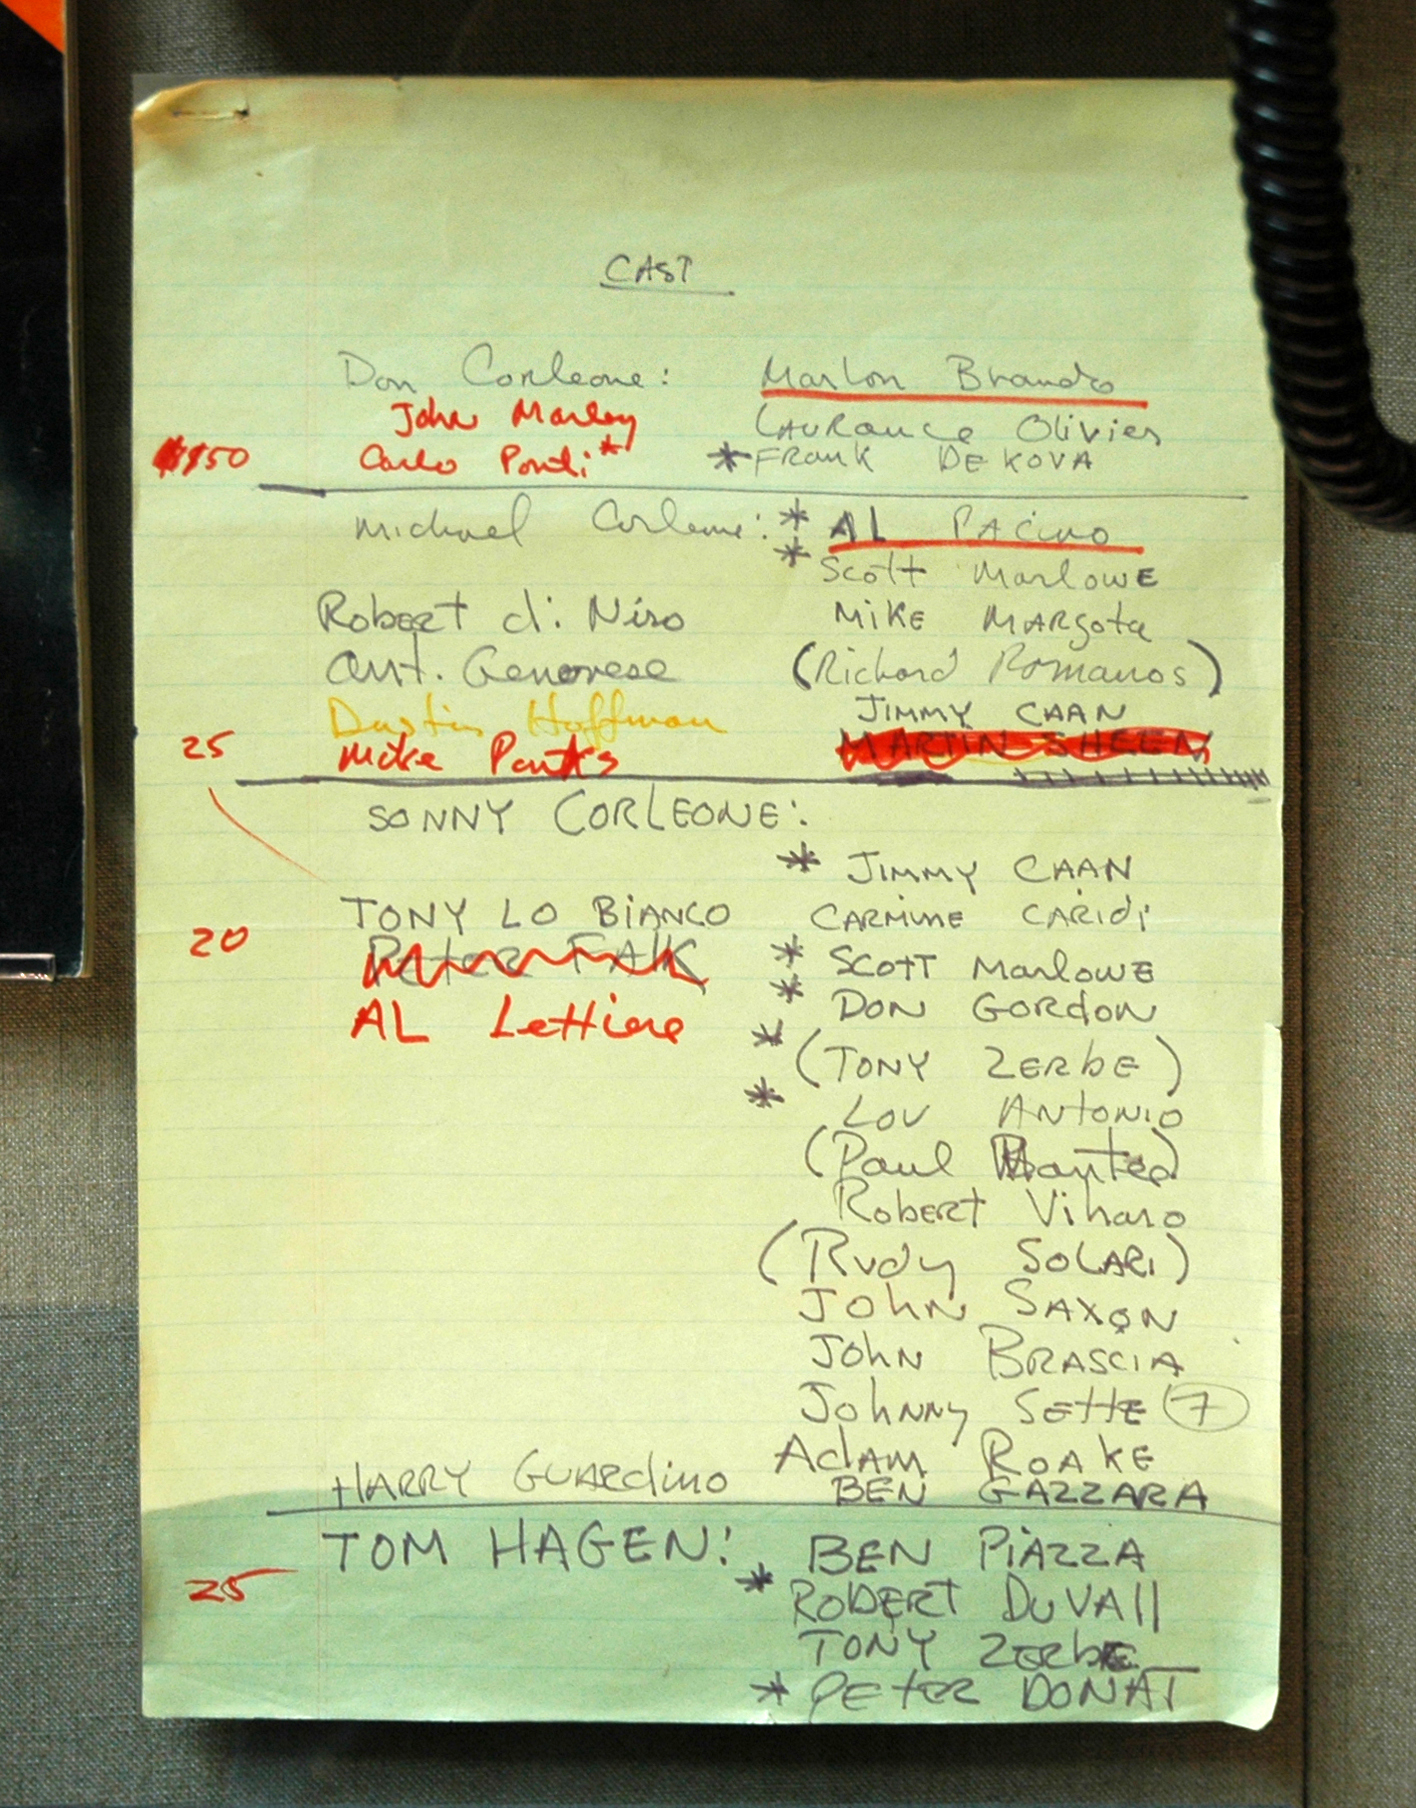 CAST
Don Corleone: Marlon Brando
John Marley Laurance Olivier
$150 Carlo Ponti* * Frank DE KOVA
Michael Corleone: * AL PACino
* Scott MarlowE
Robert di Niro MiKE MARgota
Ant. Genovese (Richard Romanos)
Dustin Hoffman JIMMY CAAN
25 Mike Parks MARTIN SHEEN
SONNY CORLEONE:
* JIMMY CAAN
TONY LO BiANCO CARMiNE CARIdi
20 PeteR FAlK * SCOTT MarlOWE
AL Lettiere * DON GORdON
* (TONY ZERbE)
* LOU ANtONiO
(Paul Mantee)
RobERT Viharo
(Rudy SOLARI)
JOhN SAXON
JOhN BRASCIA
JOhNNy SEttE (7)
AdAM ROAKE
HARRY GUARdiNO BEN GAZZARA
TOM HAGEN: BEN PiAZZA
25 * ROBERT DUVAll
TONY ZERbE
* PETER DONAT